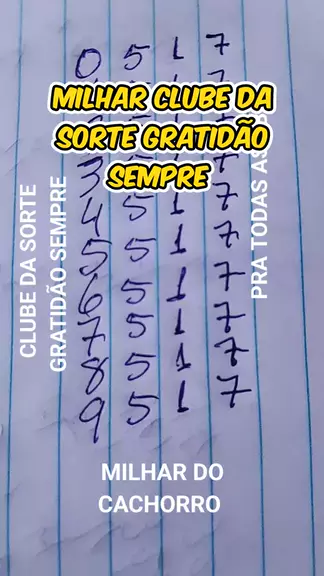 0 5 1 7
MILHAR CLUBE DA
SORTE GRATIDÃO
SEMPRE
3 5 1 7
4 5 1 7
5 5 1 7
6 5 1 7
7 5 1 7
8 5 1 7
9 5 1 7
CLUBE DA SORTE
GRATIDÃO SEMPRE
PRA TODAS AS
MILHAR DO
CACHORRO